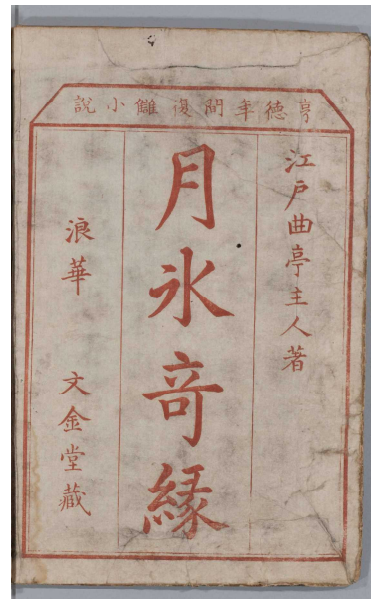 亨徳年間復讎小說
江戸曲亭主人著
月氷竒緣
浪華 文金堂藏